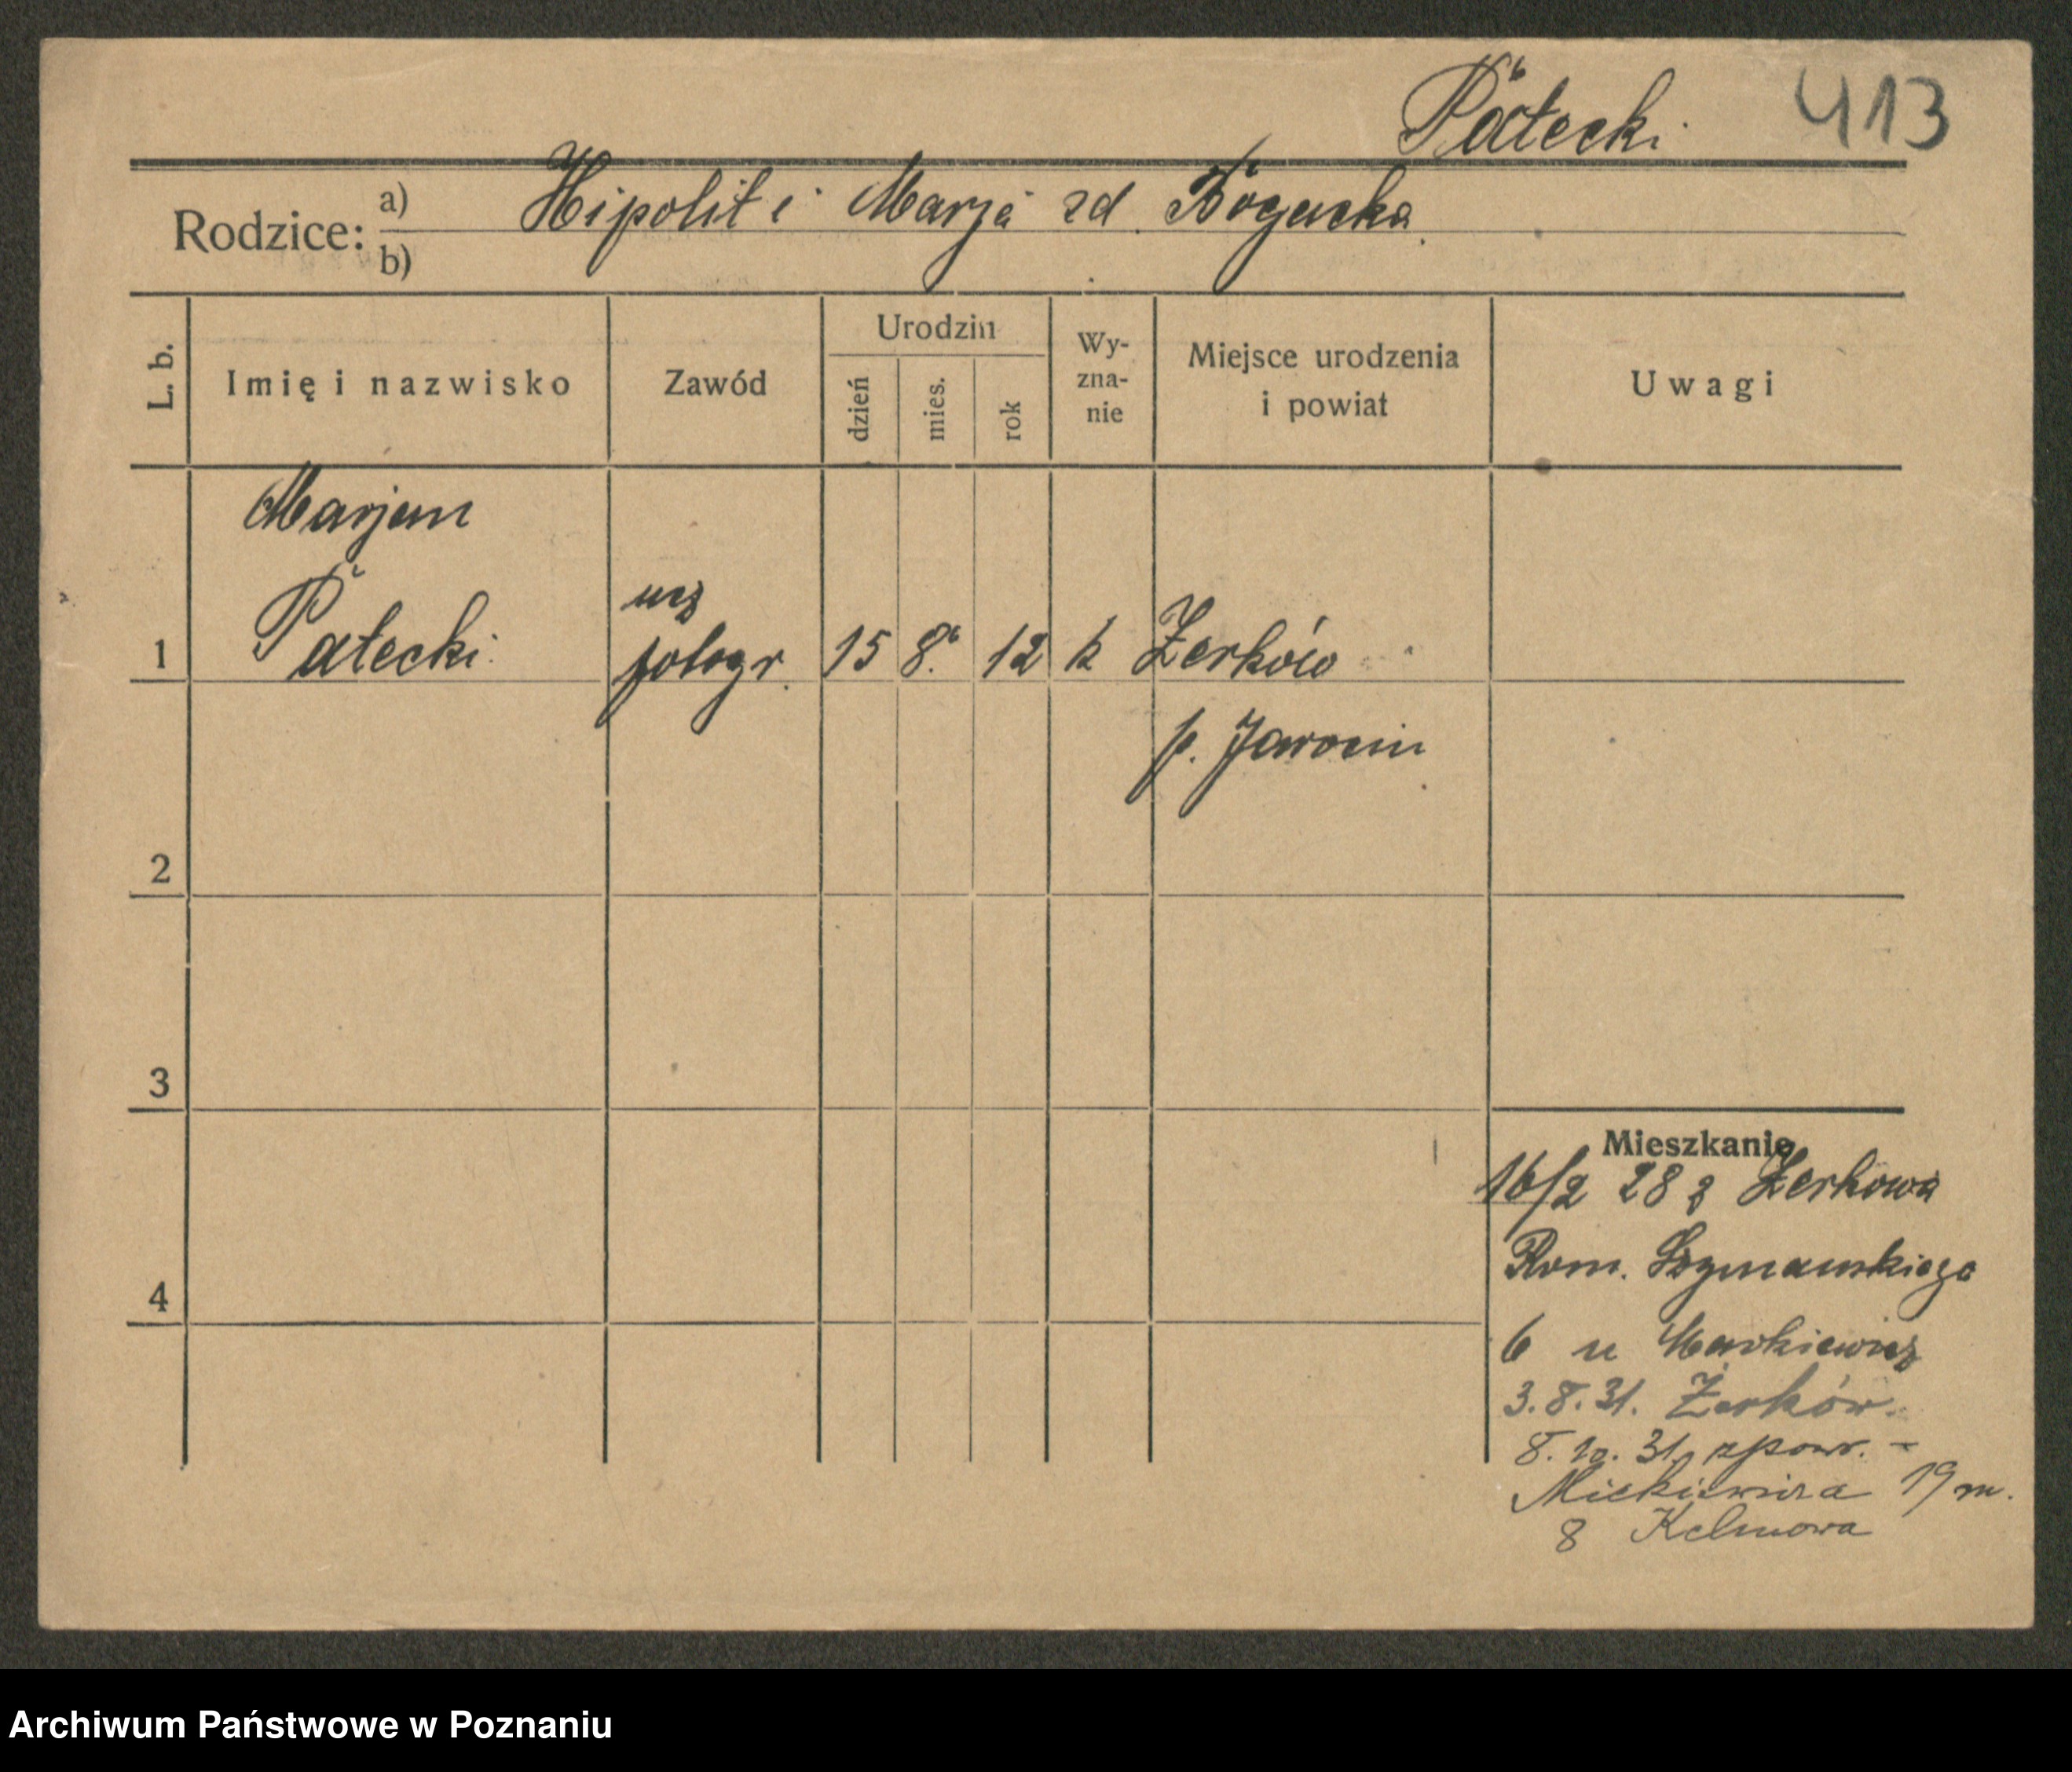 Pałecki 413
Rodzice: a) Hipolit i Marja zd. Bogucka
b)
L. b. Imię i nazwisko Zawód Urodzin dzień mies. rok Wyznanie Miejsce urodzenia i powiat Uwagi
Marjan
ucz
1 Pałecki fotogr. 15 8. 12 k Żerków
p. Jarocin
2
3
4
Mieszkanie
16/2 28 z Żerkowa
Rom. Szymańskiego
6 u Markiewicz
3.8.31. Żerków.
8.10.31. zpowr. -
Mickiewicza 19 m.
8
Archiwum Państwowe w Poznaniu